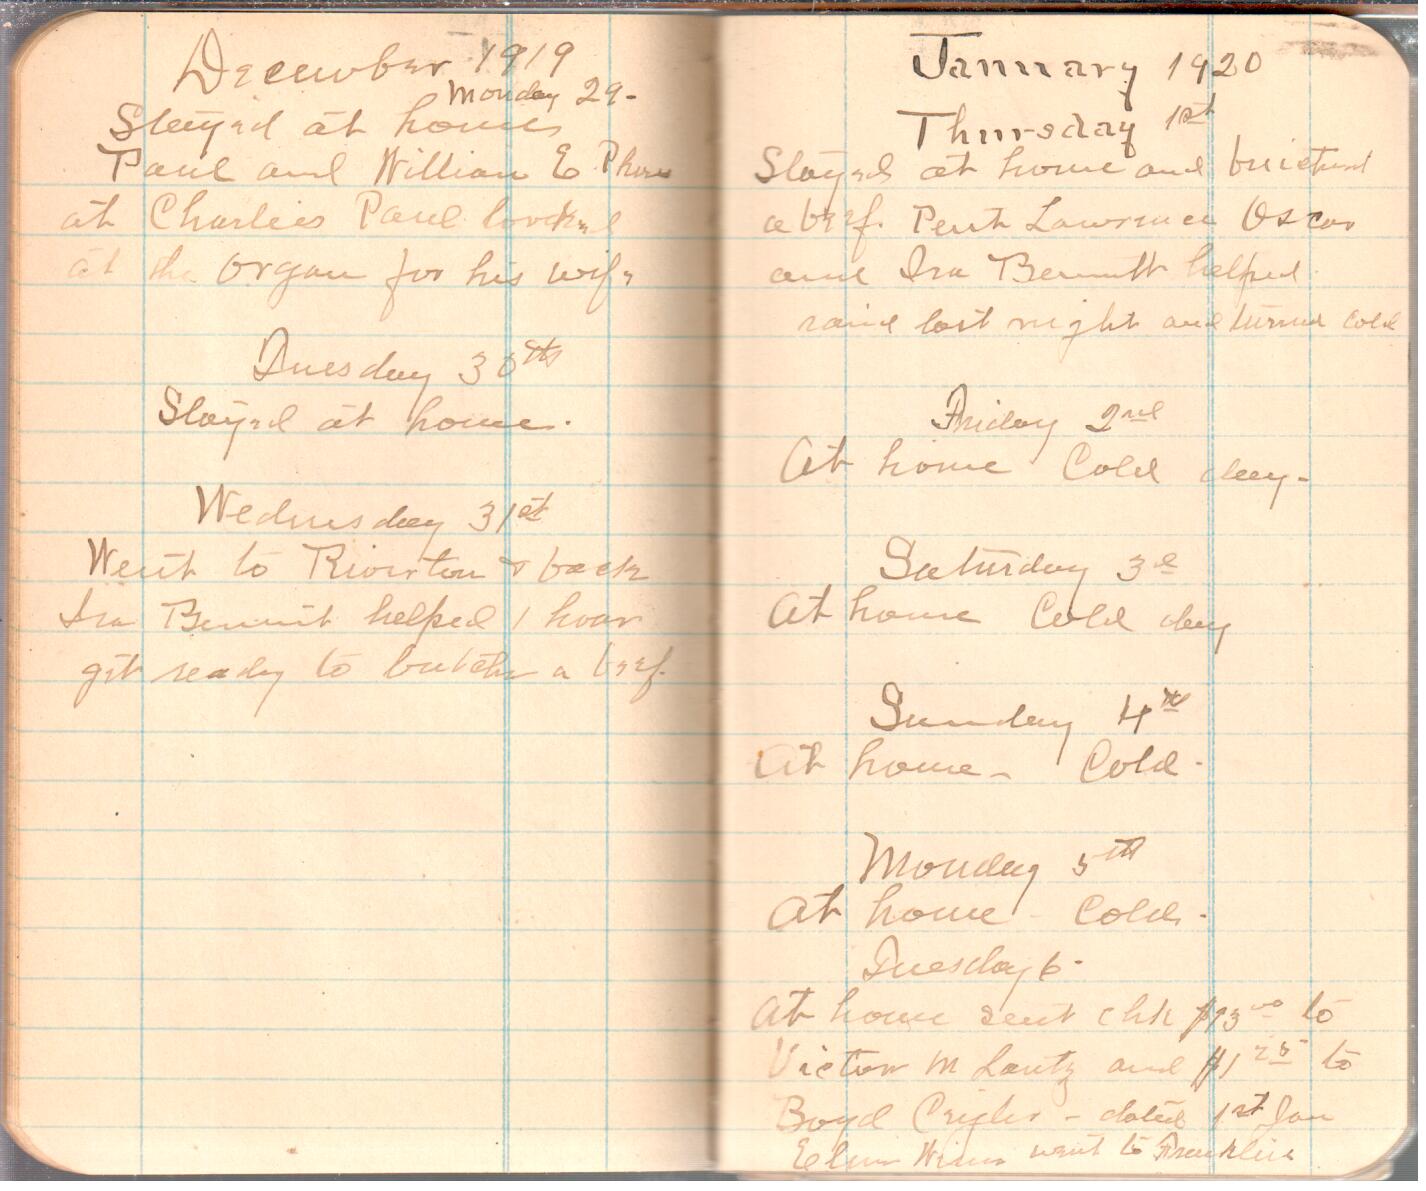 December 1919
Monday 29-
Stayed at home
Paul and William E
at Charlies Paul looked
at the organ for his wife
Tuesday 30th
Stayed at home.
Wednesday 31st
Went to Riverton & back
Ira Bennit helped 1 hour
git ready to butcher a beef.
January 1920
Thursday 1st
Stayed at home and
a beef. Lawrence Oscar
and Ira Bennett helped
raind last night and turned cold
Friday 2nd
At home Cold day-
Saturday 3d
At home Cold day
Sunday 4th
At home- Cold-
Monday 5th
At home - Cold-
Tuesday 6-
At home sent chk to
Victor M Lantz and $1 25 to
Boyd - dated 1st Jan
went to Franklin